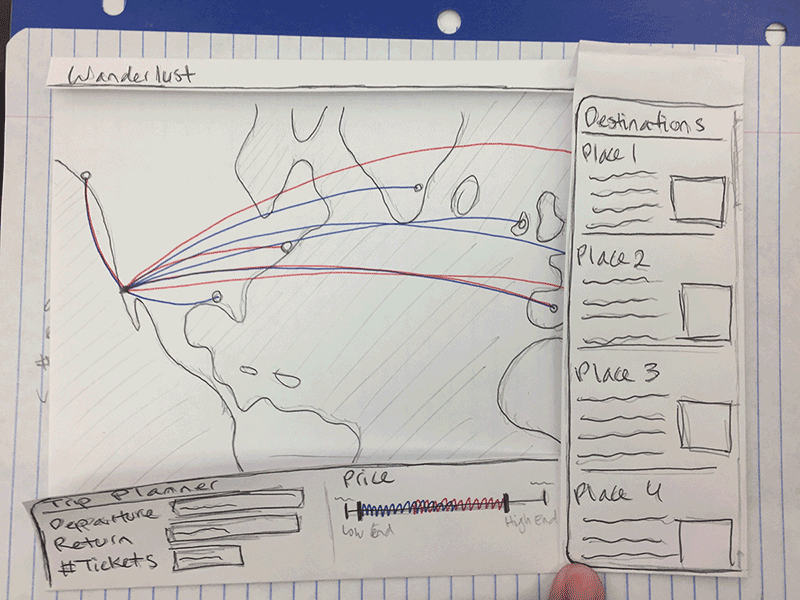 Wanderlust
Destinations
Place 1
Place 2
Place 3
Place 4
Trip Planner
Departure
Return
#Tickets
Price
Low End
High End